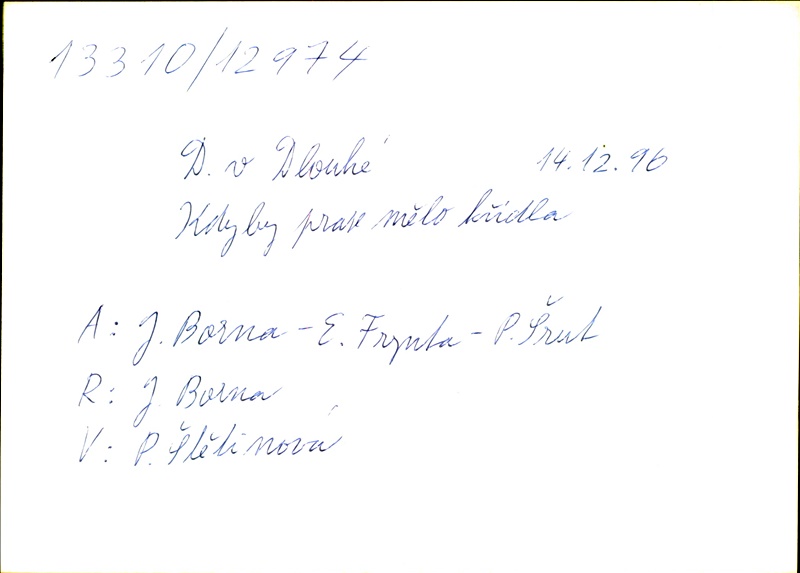 13310/12974
D. v Dlouhé 14.12.96
Kdyby prase mělo křídla
A: J. Borna - E. Frynta - P. Šrut
R: J. Borna
V: P. Štětinová